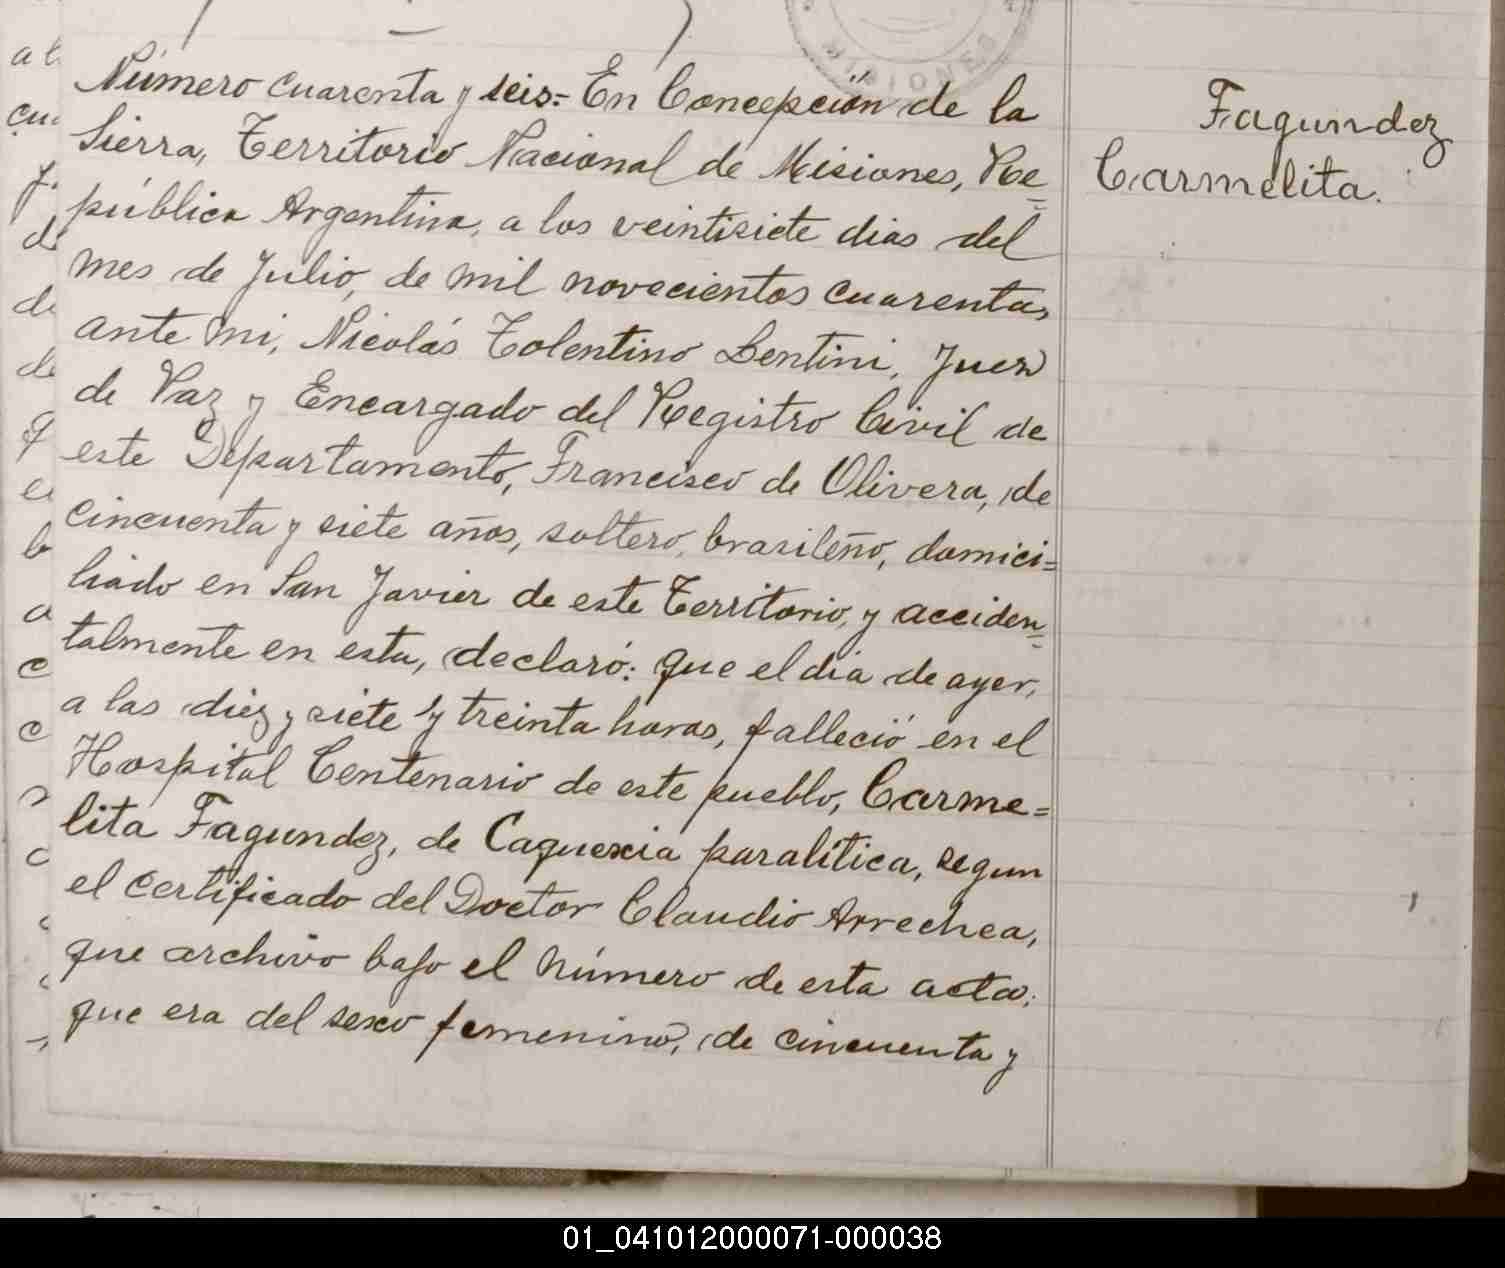 MISIONES
Número cuarenta y seis.= En Concepción de la
Sierra, Territorio Nacional de Misiones, Re=
pública Argentina, a los veintisiete dias del
mes de Julio, de mil novecientos cuarenta,
ante mi, Nicolás Tolentino Lentini, Juez
de Paz y Encargado del Registro Civil de
este Departamento, Francisco de Olivera, de
cincuenta y siete años, soltero, brasileño, domici=
liado en San Javier de este Territorio, y acciden=
talmente en esta, declaró: que el dia de ayer,
a las diez y siete y treinta horas, falleció en el
Hospital Centenario de este pueblo, Carme=
lita Fagundez, de Caquexia paralítica, segun
el certificado del Doctor Claudio Arrechea,
que archivo bajo el número de esta acta;
que era del sexo femenino, de cincuenta y
Fagundez
Carmelita.
01_041012000071-000038